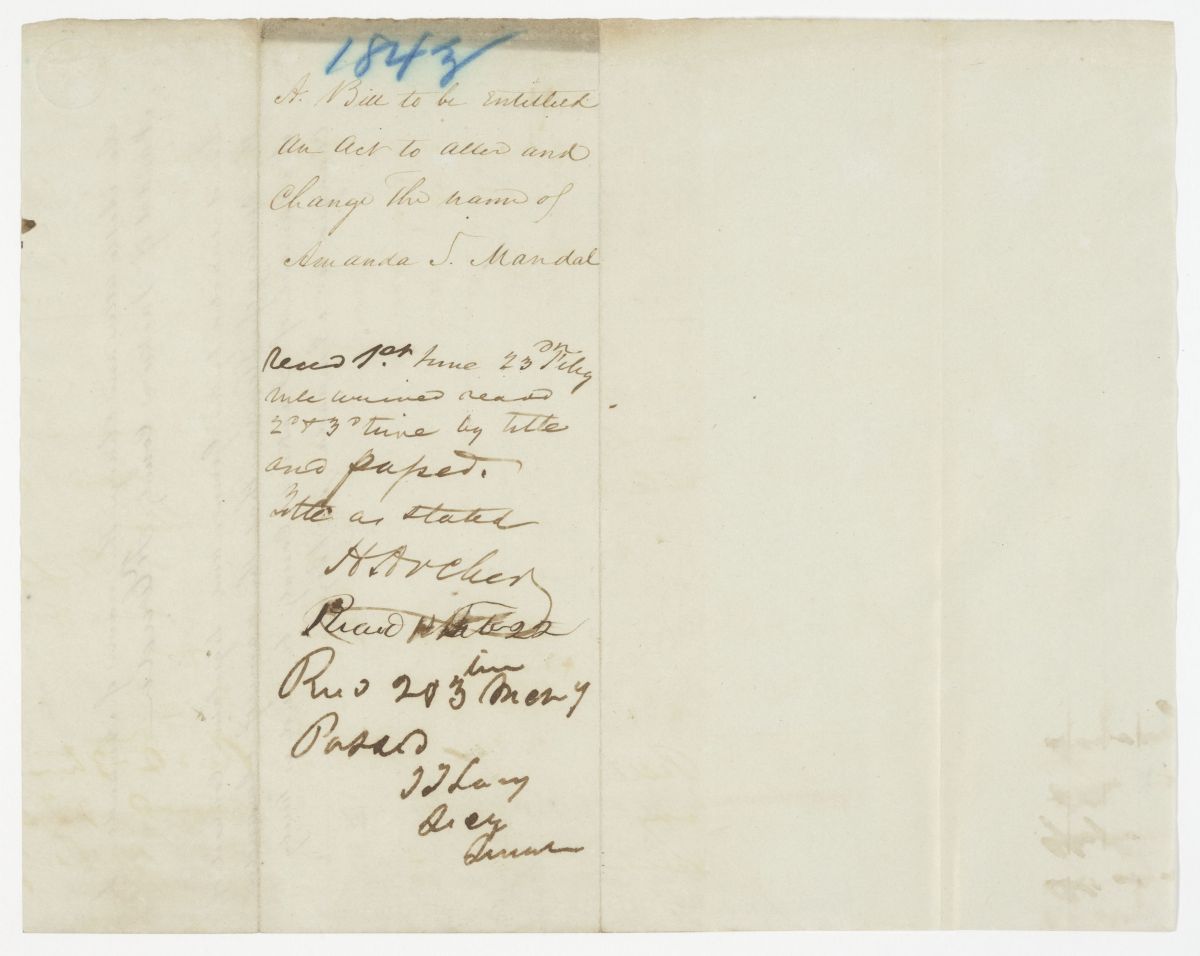 1843
A. Bill to be entitled
An Act to alter and
Change The name of
Amanda S. Mandal
read 1st time 23d Feby
rule waived read
2d & 3d time by title
and passed.
Title as stated
H Archer
Read 1st Feb 22
Read 2 & 3 time
Passed
Secy
Senate